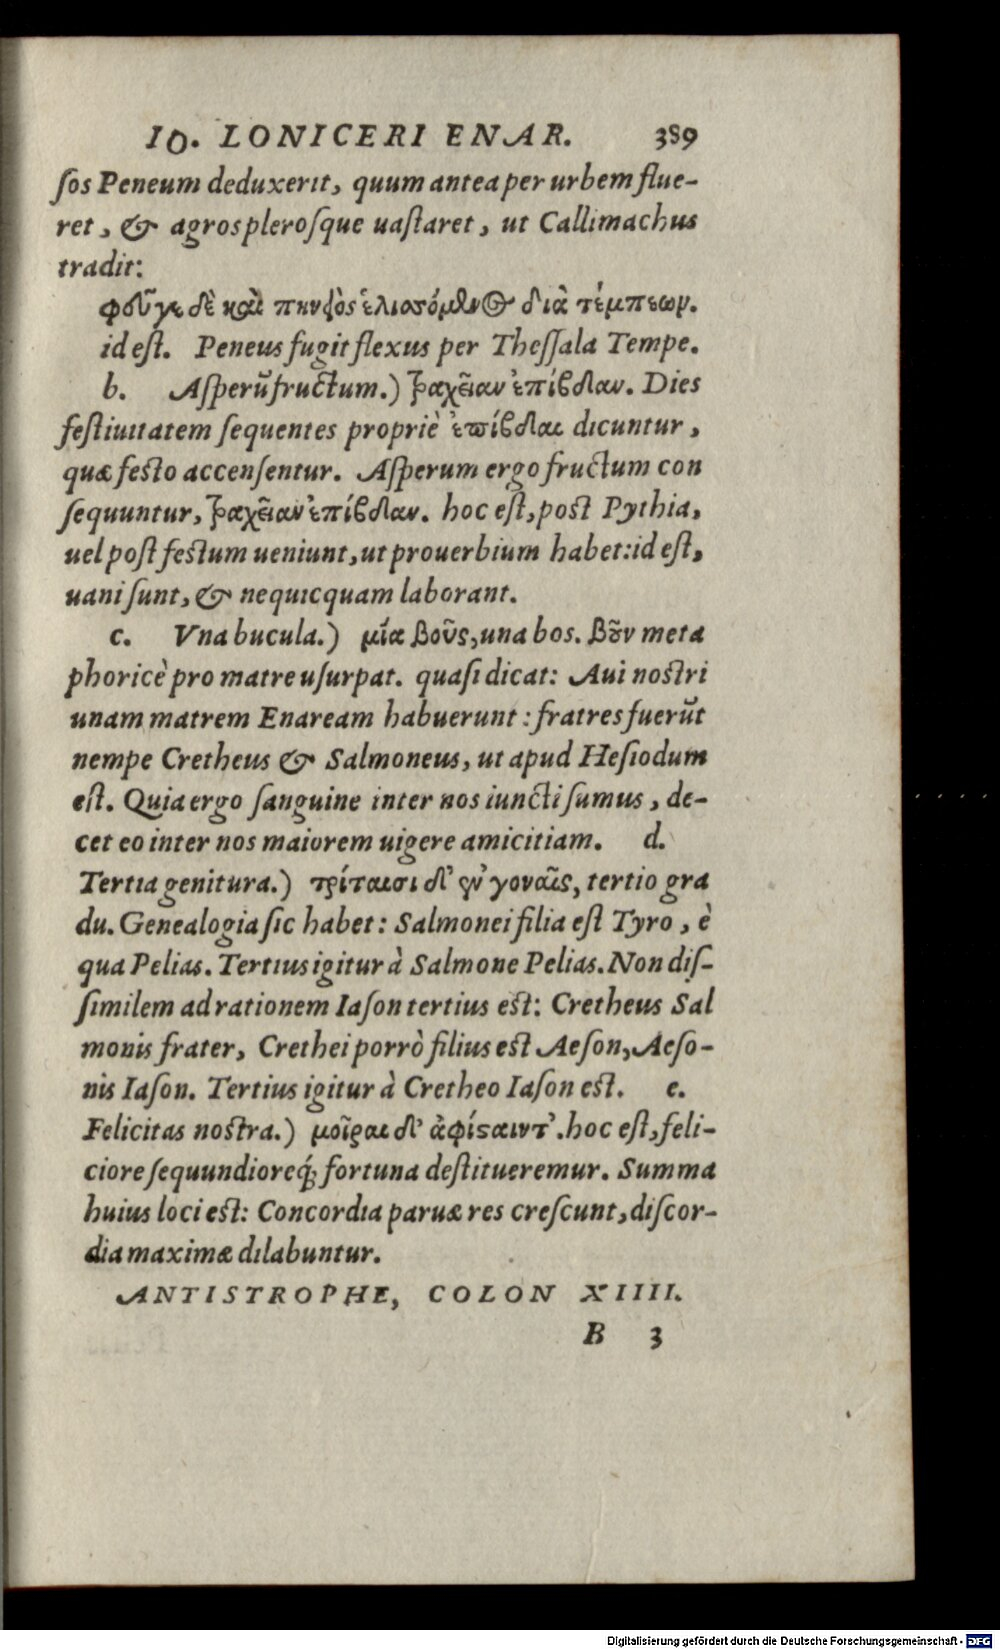 IO. LONICERI ENAR. 389
ſos Peneum deduxerit, quum antea per urbem flue-
ret, & agros pleroſque uaſtaret, ut Callimachus
tradit:
φεῦγε δὲ καὶ πηνειὸς ἑλισσόμενος διὰ τέμπεων.
id eſt. Peneus fugit flexus per Theſſala Tempe.
b. Aſperũ fructum.) τραχεῖαν ἐπίβδαν. Dies
feſtiuitatem ſequentes propriè ἐπίβδαι dicuntur,
quæ feſto accenſentur. Aſperum ergo fructum con
ſequuntur, τραχεῖαν ἐπίβδαν. hoc eſt, poſt Pythia,
uel poſt feſtum ueniunt, ut prouerbium habet: id eſt,
uani ſunt, & nequicquam laborant.
c. Vna bucula.) μία βοῦς, una bos. βοῦν meta
phoricè pro matre uſurpat. quaſi dicat: Aui noſtri
unam matrem Enaream habuerunt: fratres fuerũt
nempe Cretheus & Salmoneus, ut apud Heſiodum
eſt. Quia ergo ſanguine inter nos iuncti ſumus, de-
cet eo inter nos maiorem uigere amicitiam. d.
Tertia genitura.) τρίταισι δ' ἐν γοναῖς, tertio gra
du. Genealogia ſic habet: Salmonei filia eſt Tyro, è
qua Pelias. Tertius igitur à Salmone Pelias. Non diſ-
ſimilem ad rationem Iaſon tertius eſt: Cretheus Sal
monis frater, Crethei porrò filius eſt Aeſon, Aeſo-
nis Iaſon. Tertius igitur à Cretheo Iaſon eſt. e.
Felicitas noſtra.) μοῖραι δ' ἀφίσταιντ'. hoc eſt, feli-
ciore ſequundioreq́; fortuna deſtitueremur. Summa
huius loci eſt: Concordia paruæ res creſcunt, diſcor-
dia maximæ dilabuntur.
ANTISTROPHE, COLON XIIII.
B 3
Digitalisierung gefördert durch die Deutsche Forschungsgemeinschaft - DFG